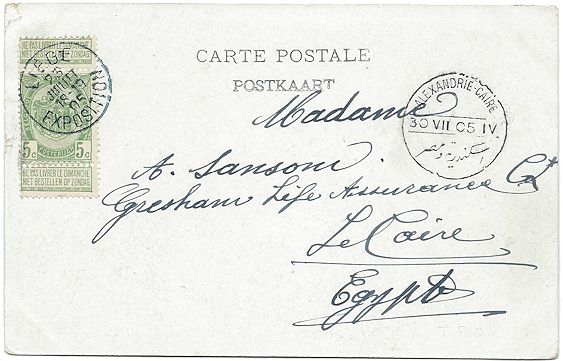 NE PAS LIVRER LE DIMANCHE
NIET BESTELLEN OP ZONDAG
LIEGE
JUILLET
18-
05
EXPOSITION
5c 5c
NE PAS LIVRER LE DIMANCHE
NIET BESTELLEN OP ZONDAG
CARTE POSTALE
POSTKAART
ALEXANDRIE-CAIRE
30 VII 05 IV
اسكندرية ومصر
Madame
A. Sansoni
Gresham Life Assurance Cº
Le Caire
Egypte